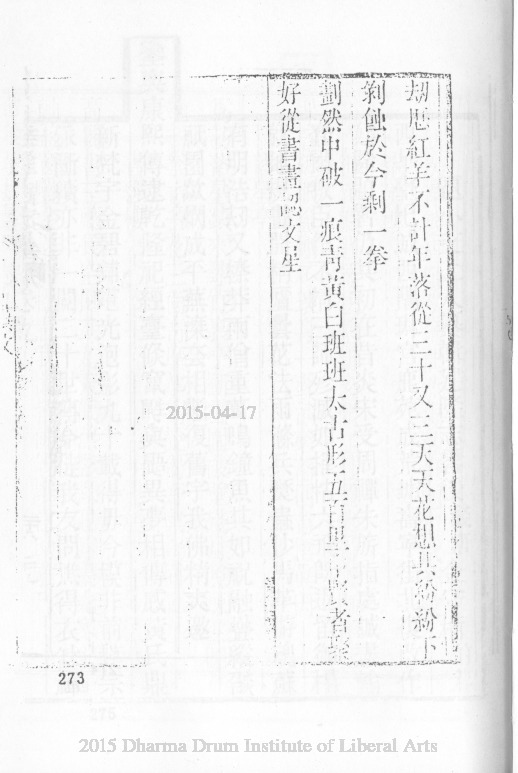 劫歷紅羊不計年落從三十又三天天花想共紛紛下
剝蝕於今剩一拳
劃然中破一痕靑黃白班班太古形五百里中賢者聚
好從書畫認文星
2015-04-17
273
2015 Dharma Drum Institute of Liberal Arts